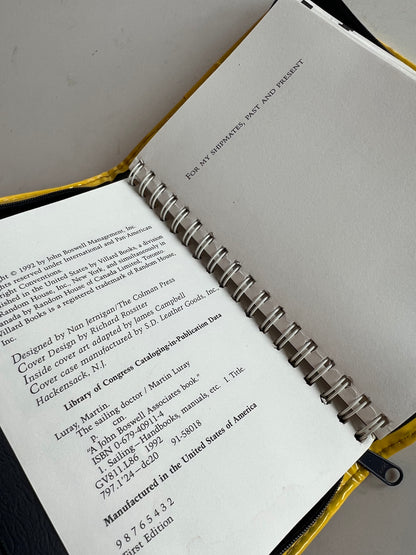 ght © 1992 by John Boswell Management, Inc.
ghts reserved under International and Pan-American
right Conventions.
blished in the United States by Villard Books, a division
Random House, Inc., New York, and simultaneously in
Canada by Random House of Canada Limited, Toronto.
Villard Books is a registered trademark of Random House,
Inc.
Designed by Nan Jernigan/The Colman Press
Cover Design by Richard Rossiter
Inside cover art adapted by James Campbell
Cover case manufactured by S.D. Leather Goods, Inc.,
Hackensack, N.J.
Library of Congress Cataloging-in-Publication Data
Luray, Martin.
The sailing doctor / Martin Luray
p. cm.
"A John Boswell Associates book"
ISBN 0-679-40911-4
1. Sailing—Handbooks, manuals, etc. I. Title.
GV811.L86 1992
797.1'24—dc20 91-58018
Manufactured in the United States of America
9 8 7 6 5 4 3 2
First Edition
FOR MY SHIPMATES, PAST AND PRESENT